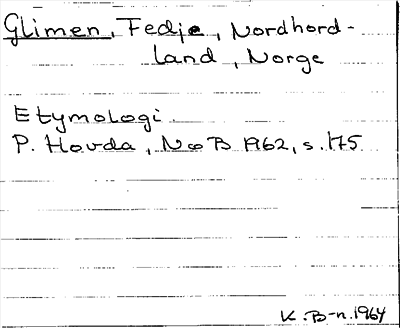 Glimen, Fedje, Nordhord-
land, Norge
Etymologi.
P. Hovda, NoB 1962, s. 175
K. B-n. 1964